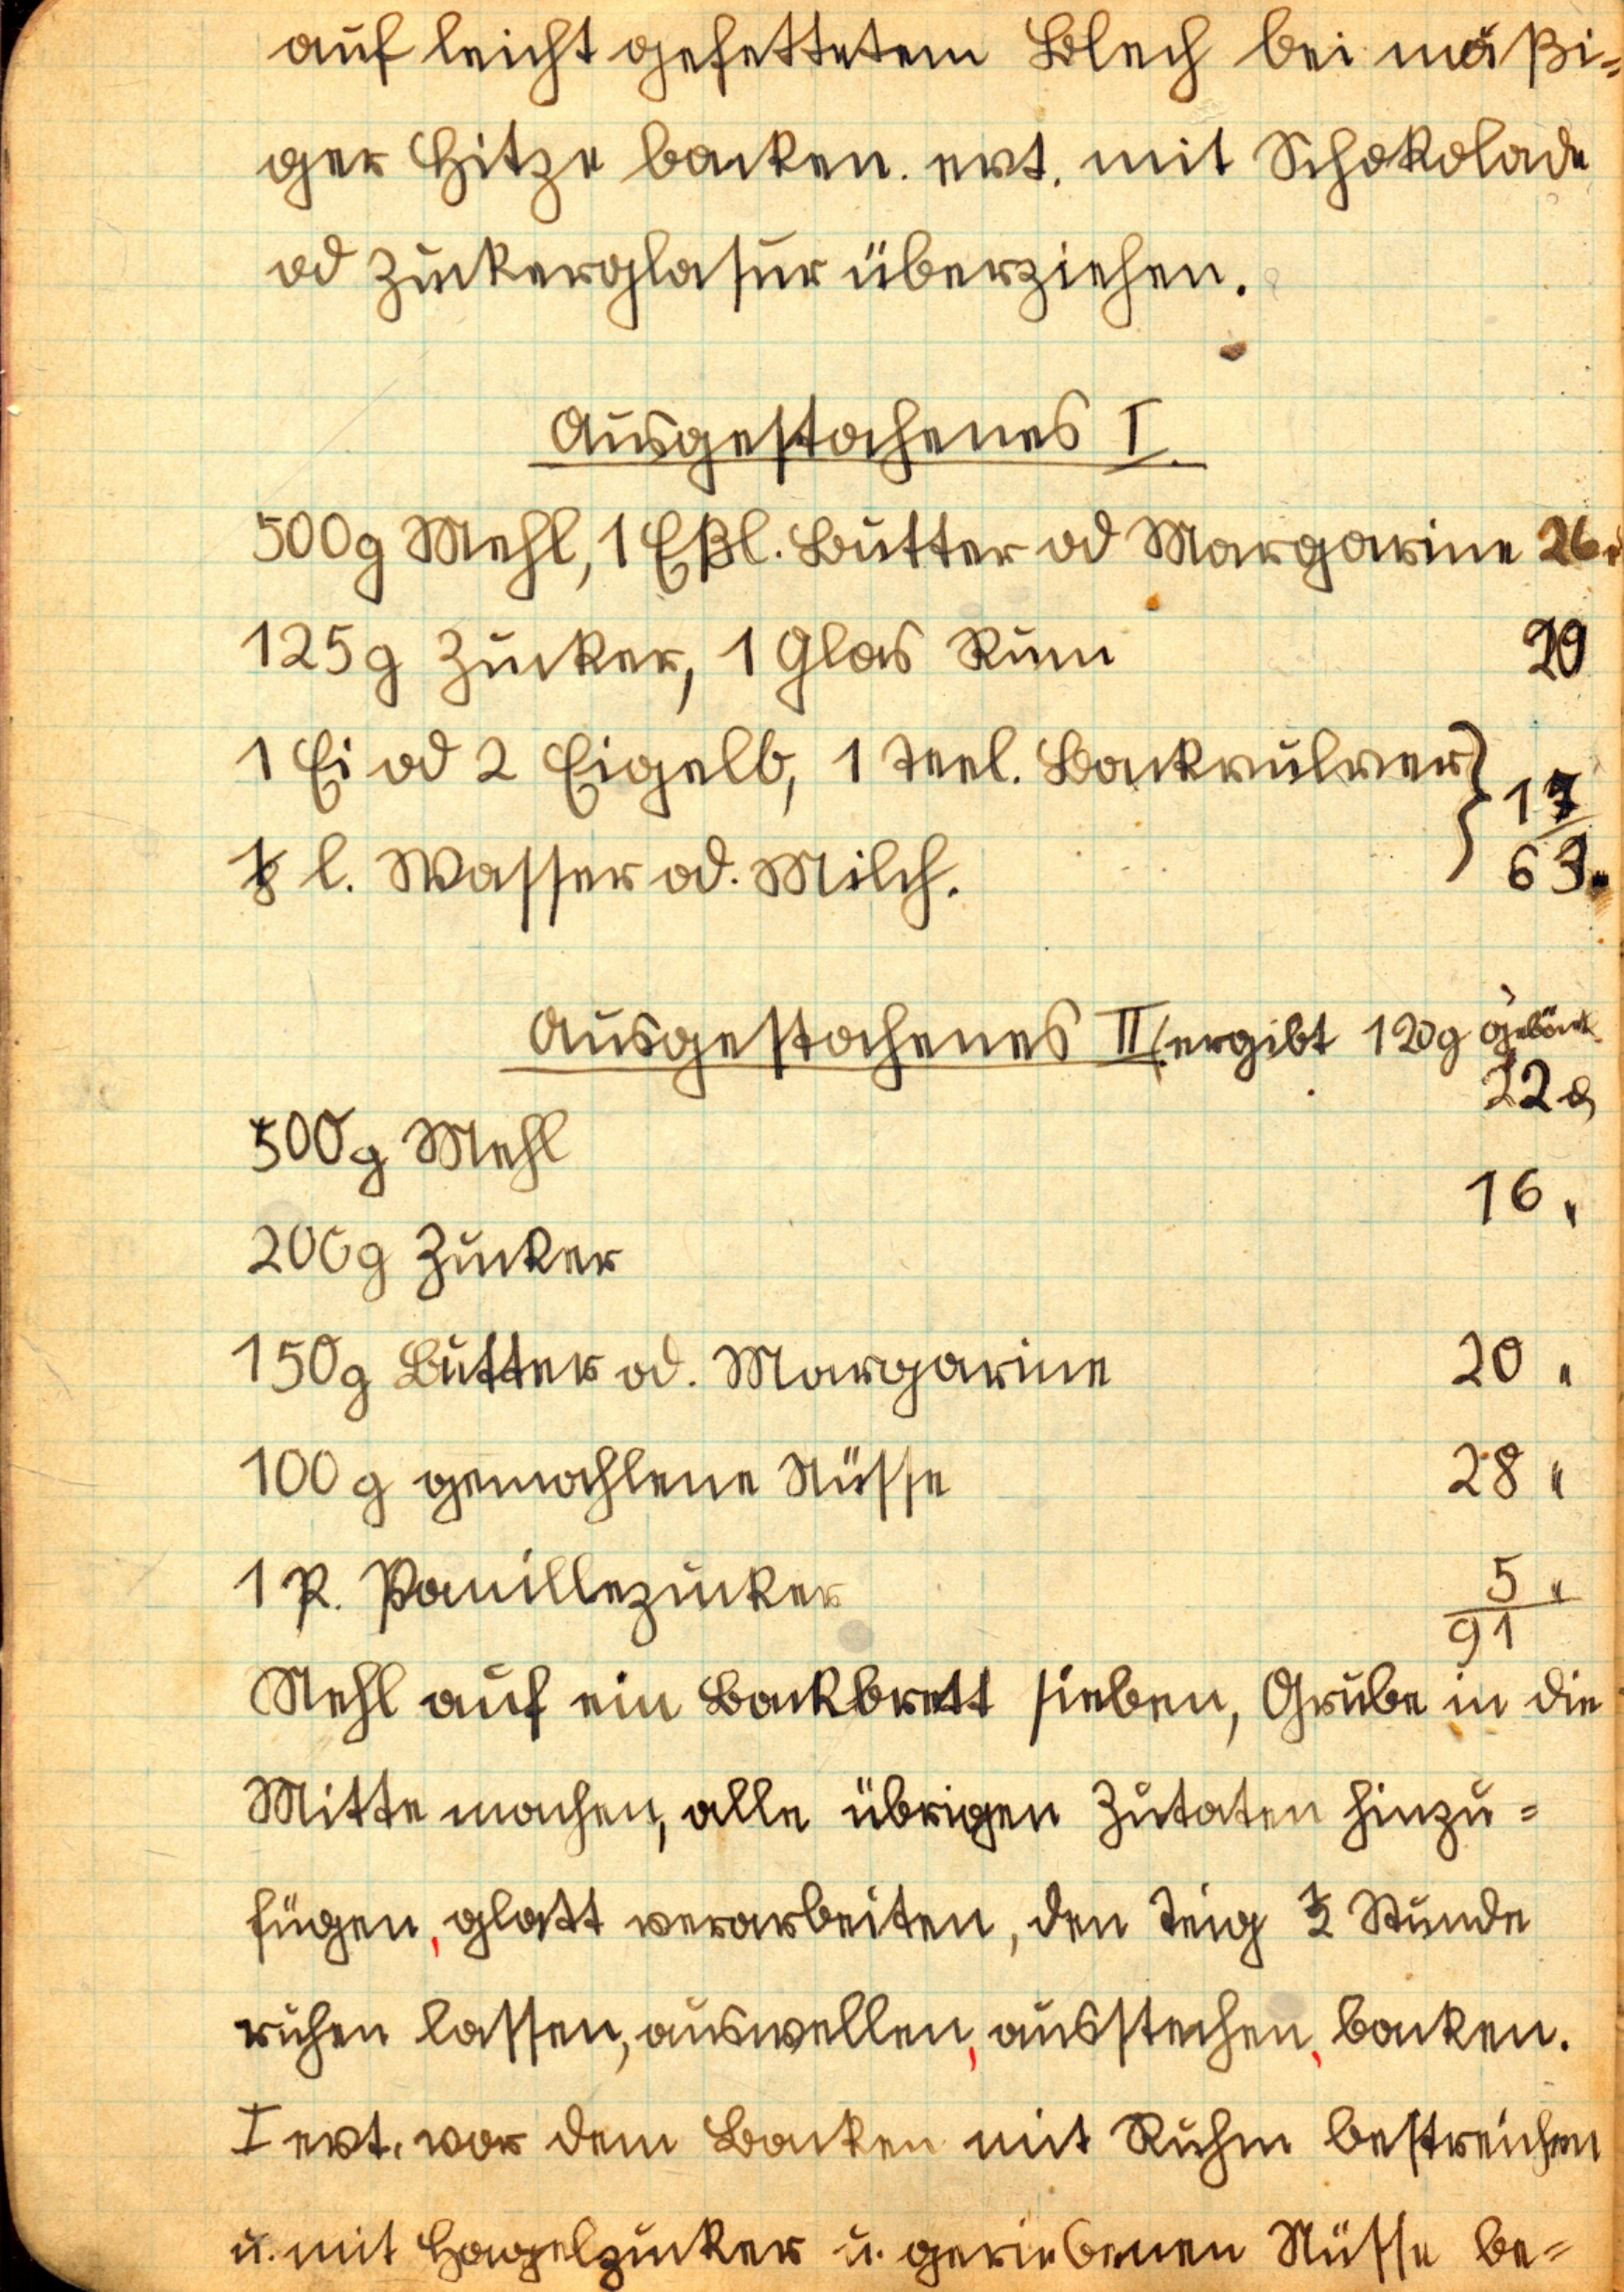 auf leicht gefettetem Blech bei mäßi=
ger Hitze backen. evt. mit Schokolade
od Zuckerglasur überziehen.
Ausgestochenes I.
500g Mehl, 1 Eßl. Butter od Margarine 26
125g Zucker, 1 Glas Rum 20
1 Ei od 2 Eigelb, 1 Teel. Backpulver } 17
1/8 l. Wasser od. Milch. 63
Ausgestochenes II (ergibt 120g Gebäck
22
500g Mehl
16 "
200g Zucker
150g Butter od. Margarine 20 "
100g gemahlene Nüsse 28 "
1 P. Vanillezucker 5 "
91
Mehl auf ein Backbrett sieben, Grube in die
Mitte machen, alle übrigen Zutaten hinzu=
fügen, glatt verarbeiten, den Teig 1/2 Stunde
ruhen lassen, auswellen, ausstechen, backen.
I evt. vor dem Backen mit Ruhm bestreichen
u. mit Hagelzucker u. geriebenen Nüsse be=